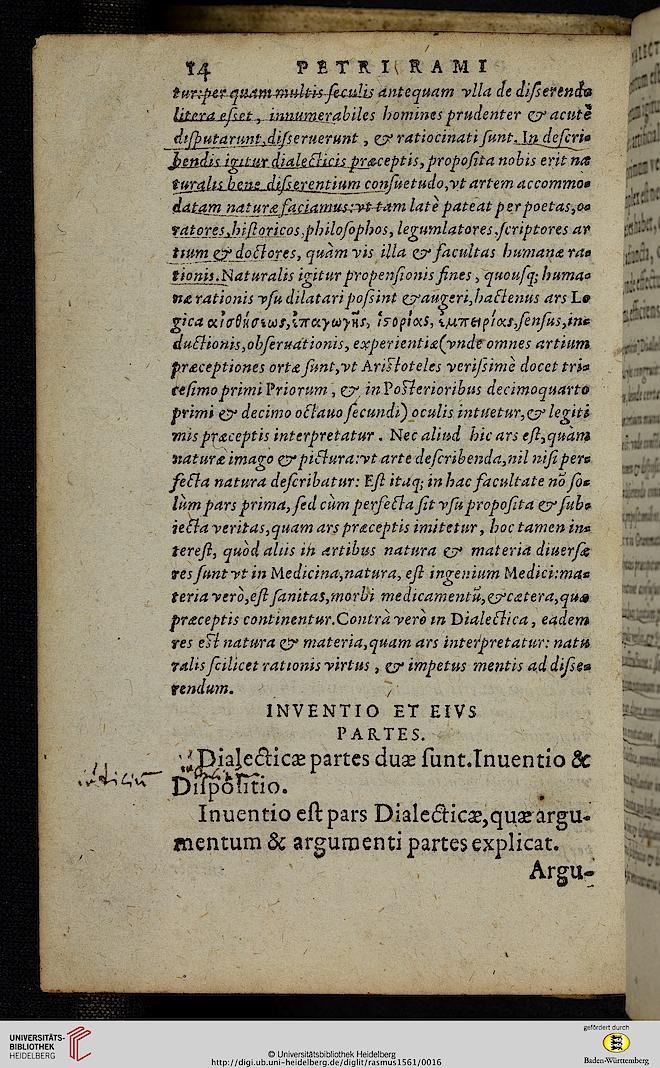 14 PETRI RAMI
tur: per quam multis seculis antequam vlla de disserendo
litera esset, innumerabiles homines prudenter & acutè
disputarunt, disseruerunt, & ratiocinati sunt. In descri=
bendis igitur dialecticis præceptis, proposita nobis erit na
turalis bene disserentium consuetudo, vt artem accommo=
datam naturæ faciamus: vt tam latè pateat per poetas, o=
ratores, historicos, philosophos, legumlatores, scriptores ar
tium & doctores, quàm vis illa & facultas humanæ ra=
tionis. Naturalis igitur propensionis fines, quousq; huma=
næ rationis vsu dilatari possint & augeri, hactenus ars Lo
gica αἰσθήσεως, ἐπαγωγῆς, ἱστορίας, ἐμπειρίας, sensus, in=
ductionis, obseruationis, experientiæ (vnde omnes artium
præceptiones ortæ sunt, vt Aristoteles verissimè docet tri=
cesimo primi Priorum, & in Posterioribus decimoquarto
primi & decimo octauo secundi) oculis intuetur, & legiti
mis præceptis interpretatur. Nec aliud hic ars est, quàm
naturæ imago & pictura: vt arte describenda, nil nisi per=
fecta natura describatur: Est itaq; in hac facultate nō so=
lùm pars prima, sed cùm perfecta sit vsu proposita & sub=
iecta veritas, quam ars præceptis imitetur, hoc tamen in=
terest, quòd aliis in artibus natura & materia diuersæ
res sunt vt in Medicina, natura, est ingenium Medici: ma=
teria verò, est sanitas, morbi medicamentū, & cætera, quæ
præceptis continentur. Contrà verò in Dialectica, eadem
res est natura & materia, quam ars interpretatur: natu
ralis scilicet rationis virtus, & impetus mentis ad disse=
rendum.
INVENTIO ET EIVS
PARTES.
Dialecticæ partes duæ sunt. Inuentio &
Dispositio.
Inuentio est pars Dialecticæ, quæ argu-
mentum & argumenti partes explicat.
Argu-
UNIVERSITÄTS-
BIBLIOTHEK
HEIDELBERG
© Universitätsbibliothek Heidelberg
http://digi.ub.uni-heidelberg.de/diglit/rasmus1561/0016
gefördert durch
Baden-Württemberg